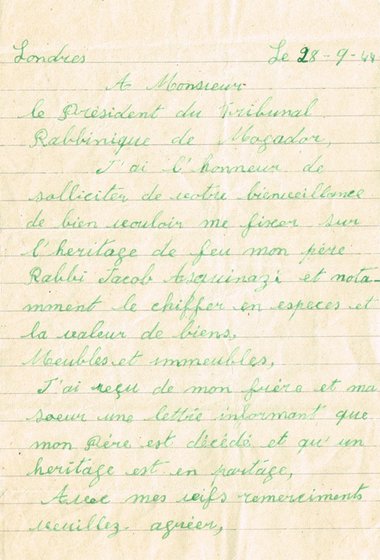 Londres Le 28-9-44
A Monsieur
le Président du Tribunal
Rabbinique de Mogador,
J'ai l'honneur de
solliciter de votre bienveillance
de bien vouloir me fixer sur
l'heritage de feu mon père
Rabbi Jacob Asquinazi et nota-
mment le chiffer en especes et
la valeur de biens,
Meubles et immeubles,
J'ai reçu de mon frère et ma
soeur une lettre informant que
mon Père est décédé et qu'un
heritage est en partage,
Avec mes vifs remerciments
veuillez agréer,